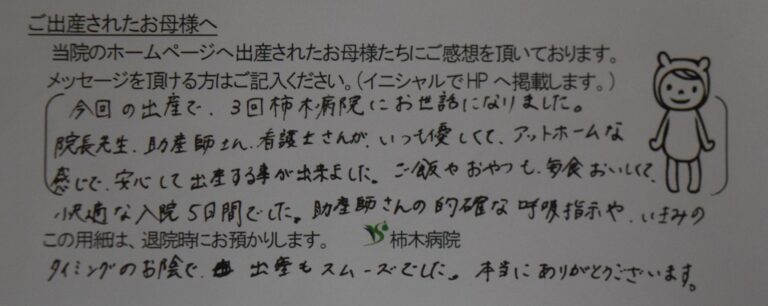 ご出産されたお母様へ
当院のホームページへ出産されたお母様たちにご感想を頂いております。
メッセージを頂ける方はご記入ください。（イニシャルでHPへ掲載します。）
今回の出産で、3回柿木病院にお世話になりました。
院長先生、助産師さん、看護士さんが、いつも優しくて、アットホームな
感じで、安心して出産する事が出来ました。ご飯やおやつも、毎食おいしくて、
快適な入院5日間でした。助産師さんの的確な呼吸指示や、いきみの
この用紙は、退院時にお預かりします。 柿木病院
タイミングのお陰で、出産もスムーズでした。本当にありがとうございます。